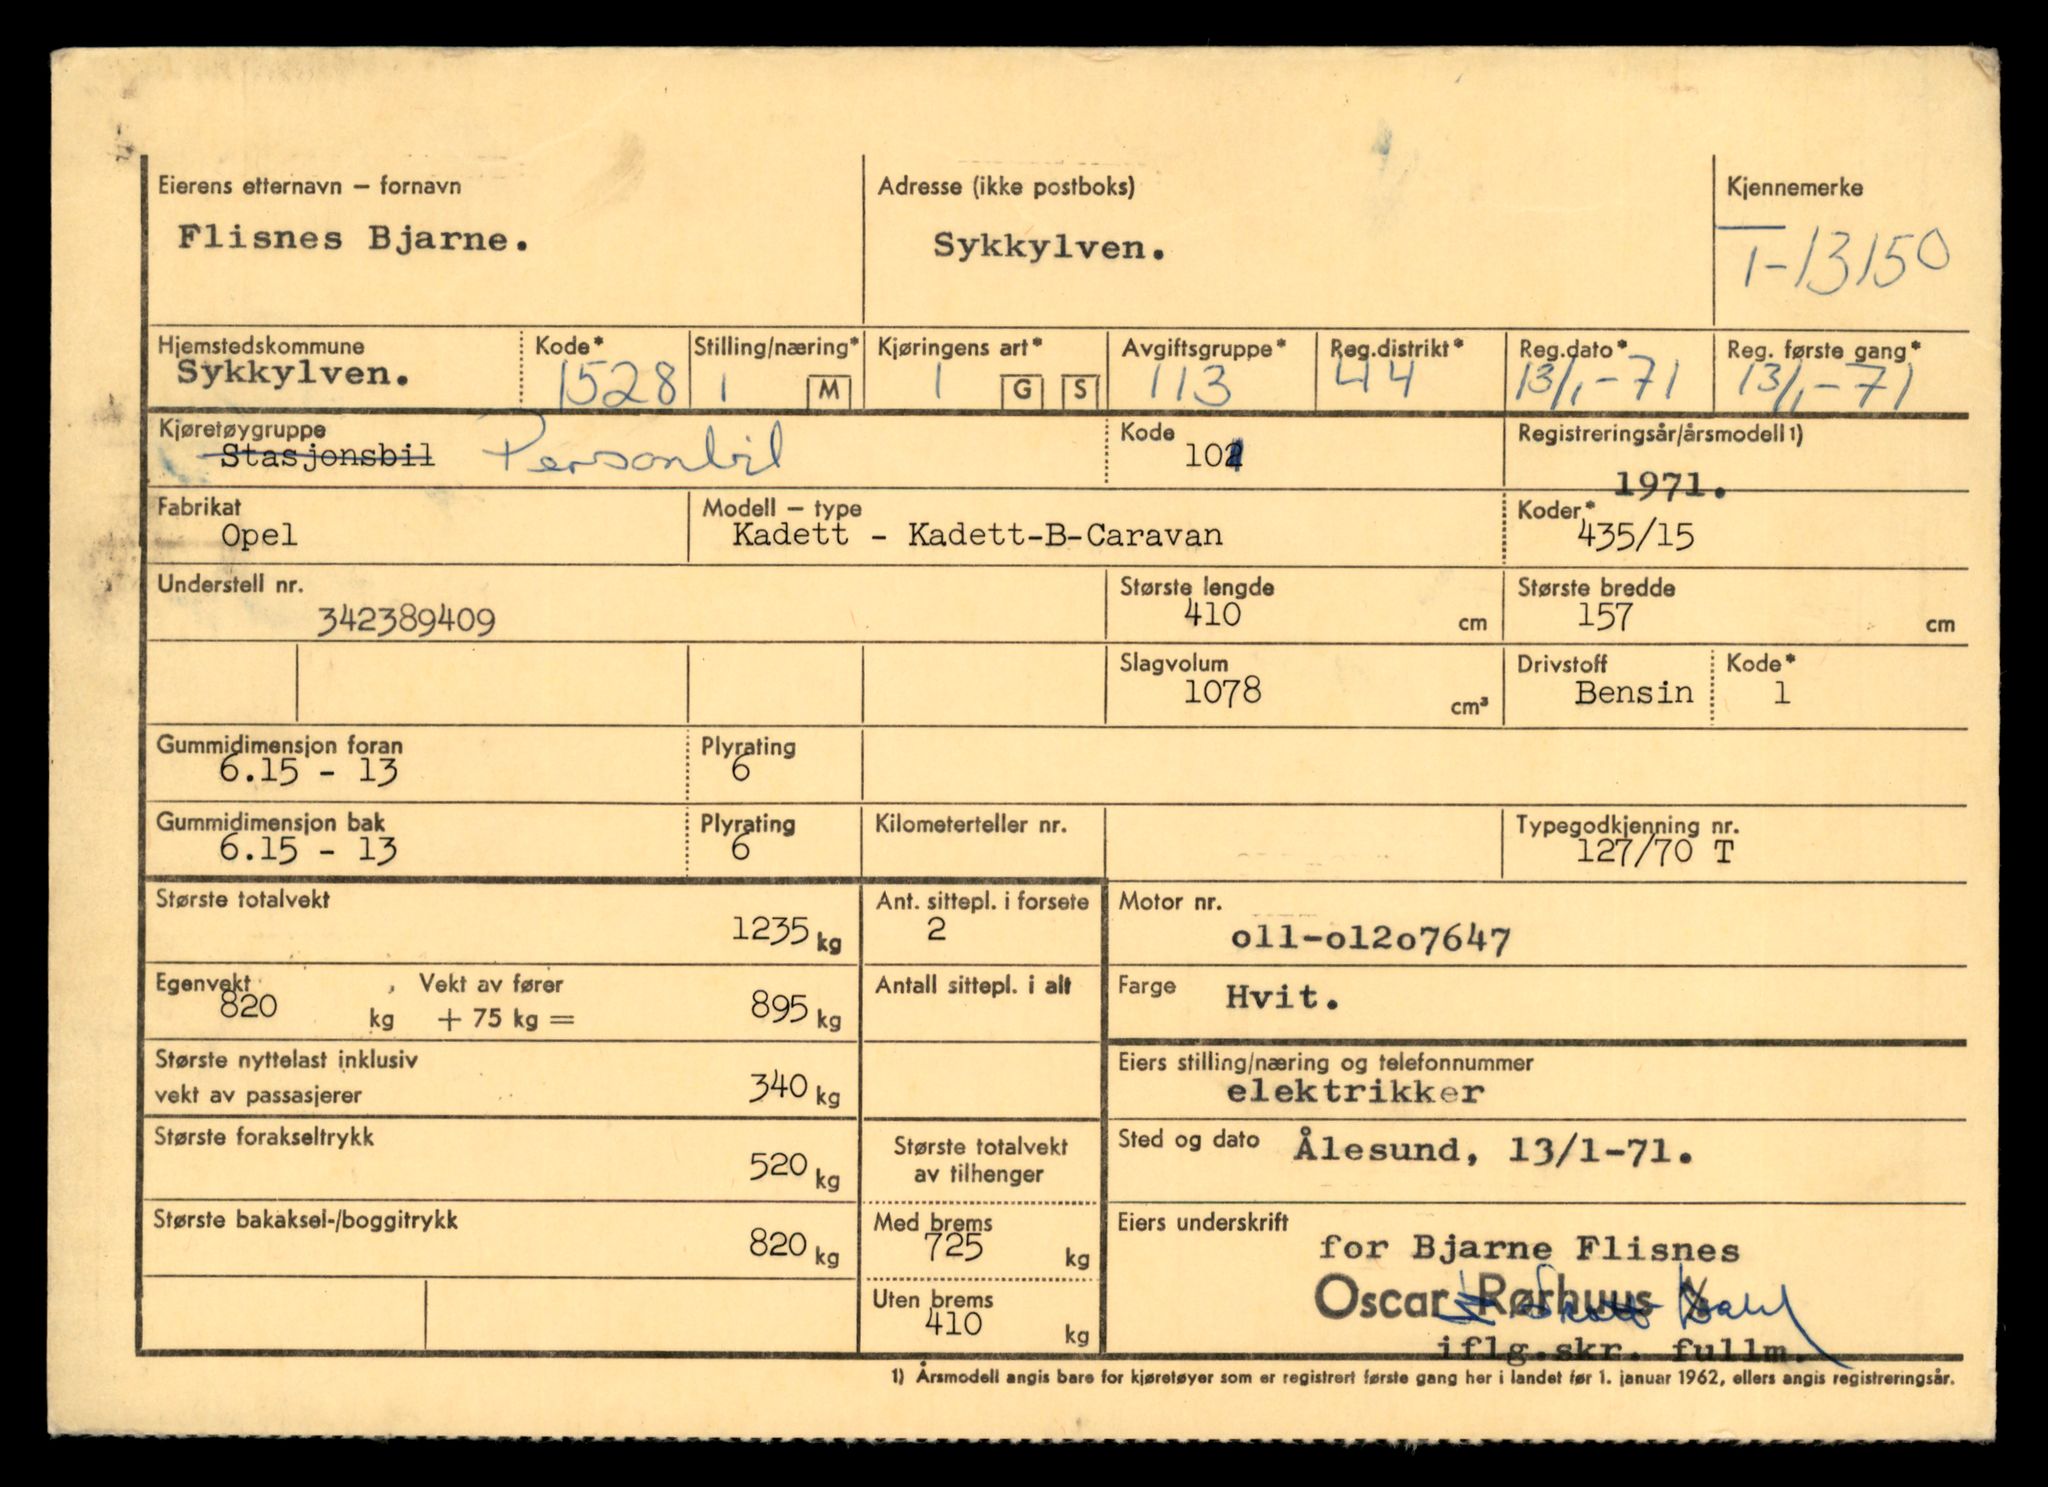 Eierens etternavn – fornavn Adresse (ikke postboks) Kjennemerke
Flisnes Bjarne. Sykkylven. T-13150
Hjemstedskommune Kode* Stilling/næring* Kjøringens art* Avgiftsgruppe* Reg.distrikt* Reg.dato* Reg. første gang*
Sykkylven. 1528 1 M 1 G S 113 44 13/1-71 13/1-71
Kjøretøygruppe Kode Registreringsår/årsmodell 1)
Stasjonsbil Personbil 101 1971.
Fabrikat Modell – type Koder*
Opel Kadett - Kadett-B-Caravan 435/15
Understell nr. Største lengde Største bredde
342389409 410 cm 157 cm
Slagvolum Drivstoff Kode*
1078 cm³ Bensin 1
Gummidimensjon foran Plyrating
6.15 - 13 6
Gummidimensjon bak Plyrating Kilometerteller nr. Typegodkjenning nr.
6.15 - 13 6 127/70 T
Største totalvekt Ant. sittepl. i forsete Motor nr.
1235 kg 2 o11-o12o7647
Egenvekt Vekt av fører Antall sittepl. i alt Farge Hvit.
820 kg + 75 kg = 895 kg
Største nyttelast inklusiv Eiers stilling/næring og telefonnummer
vekt av passasjerer 340 kg elektrikker
Største forakseltrykk Største totalvekt Sted og dato Ålesund, 13/1-71.
520 kg av tilhenger
Største bakaksel-/boggitrykk Med brems Eiers underskrift
820 kg 725 kg for Bjarne Flisnes
Uten brems Oscar Rørhuus
410 kg iflg.skr. fullm.
1) Årsmodell angis bare for kjøretøyer som er registrert første gang her i landet før 1. januar 1962, ellers angis registreringsår.